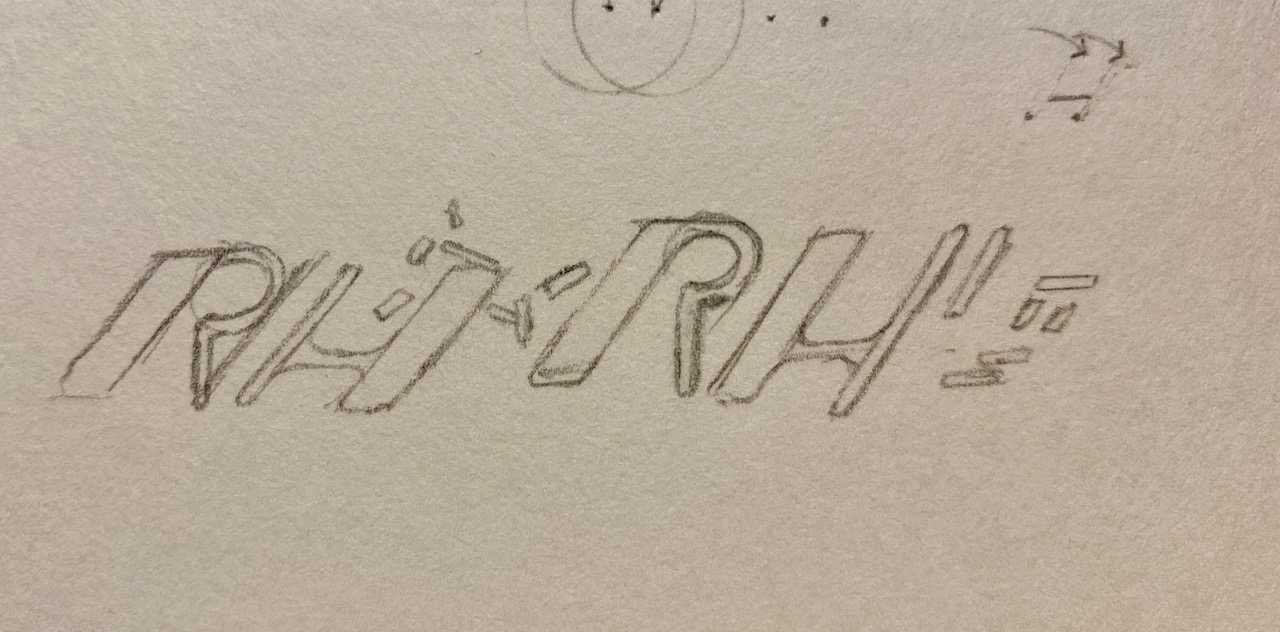 RH RH